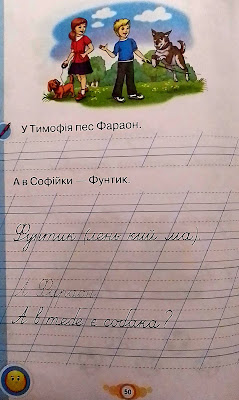 У Тимофія пес Фараон.
А в Софійки — Фунтик.
Фунтик
Фараон
А в тебе є собака?
50